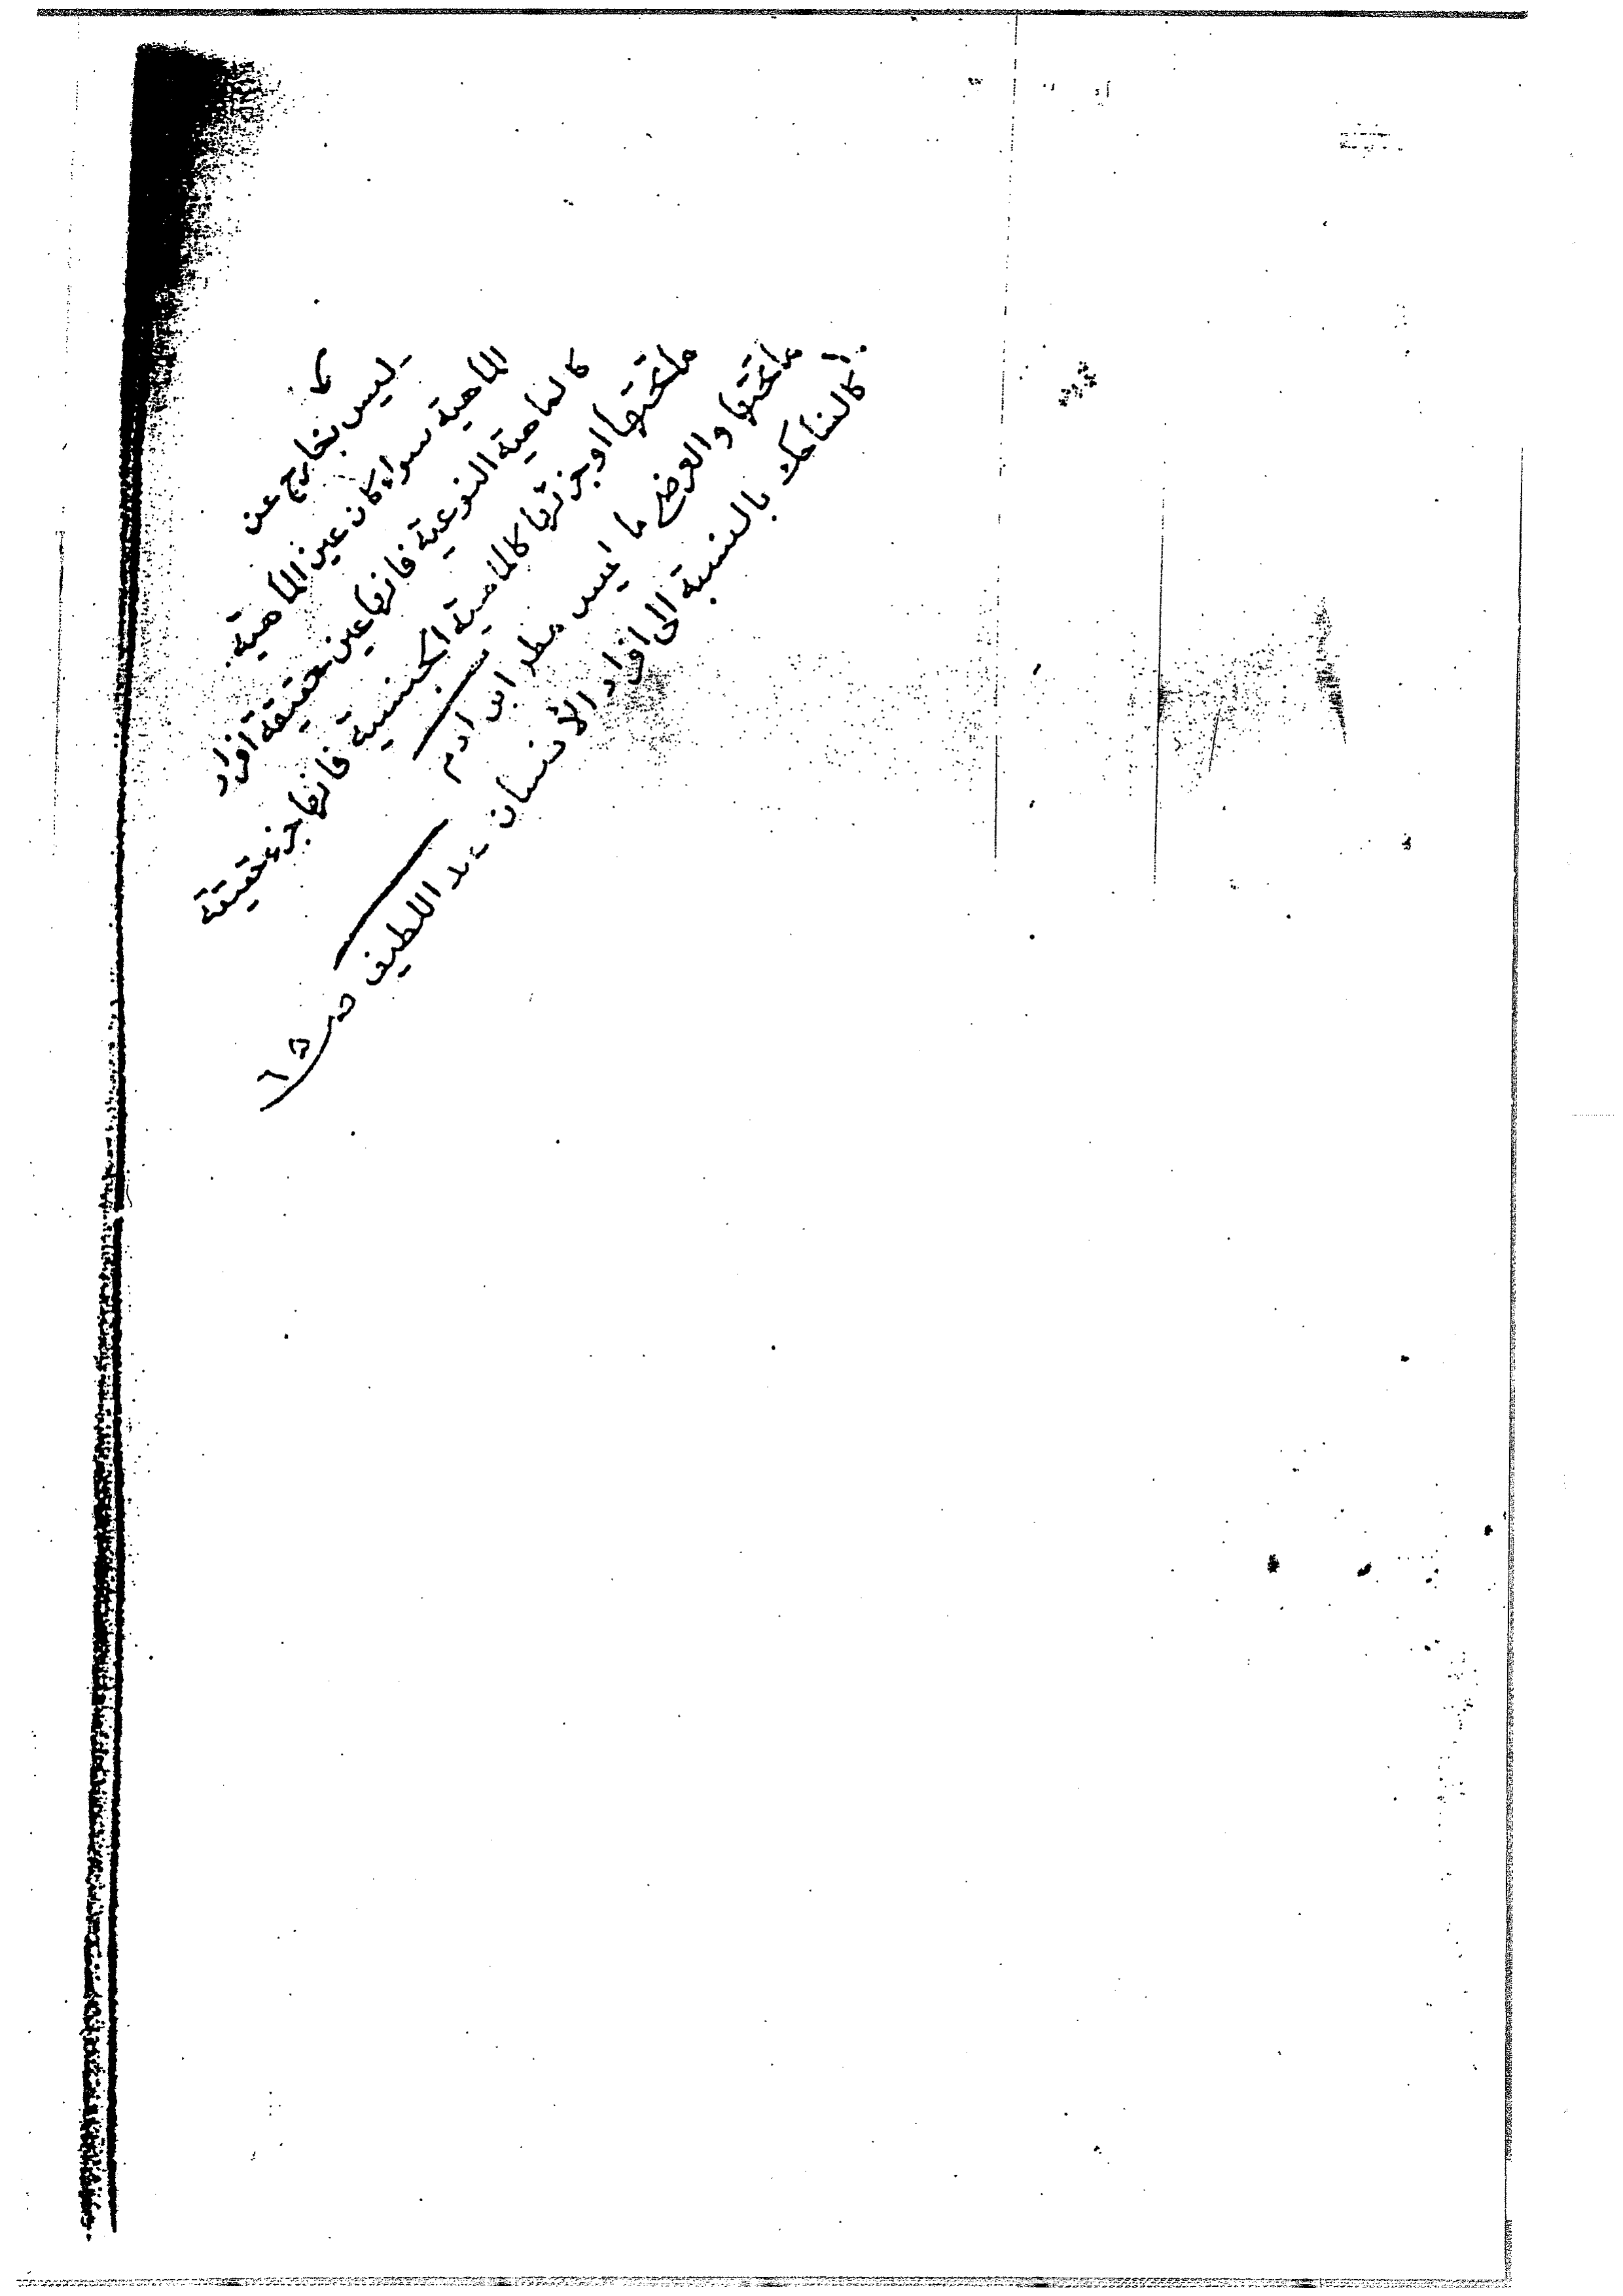 ما
ليس بخارج عن
الماهية سواء كان عين الماهية
كالماهية النوعية فانها عين حقيقة افراد
ما تحتها او جزئها كالماهية الجنسية فانها جزء حقيقة
ما تحتها والعرضي ما ليس ابن ادم
كالضاحك بالنسبة الى افراد الانسان عبد اللطيف ص ١٥